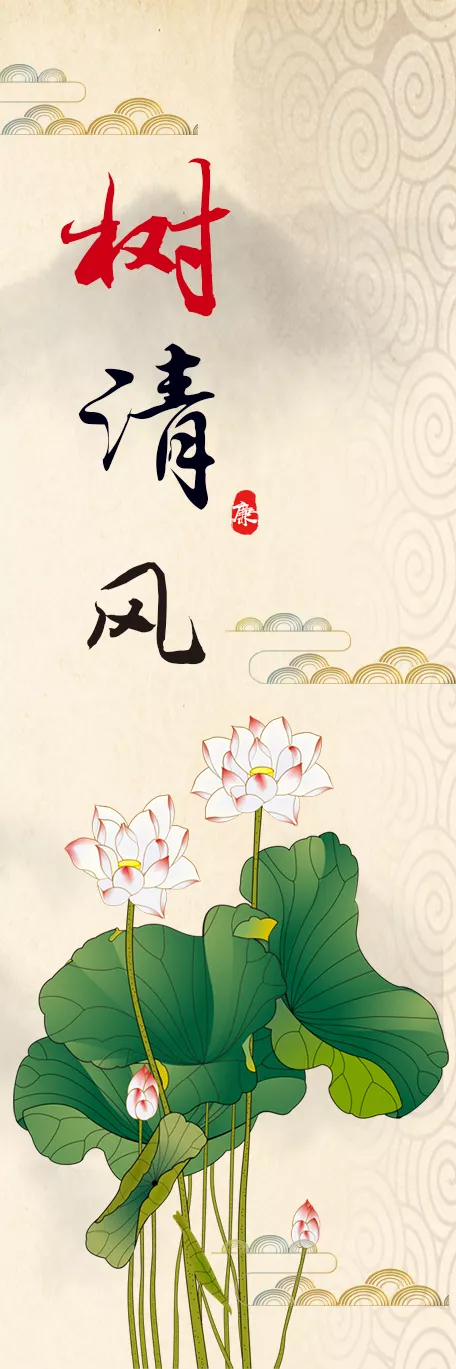 树清风
廉